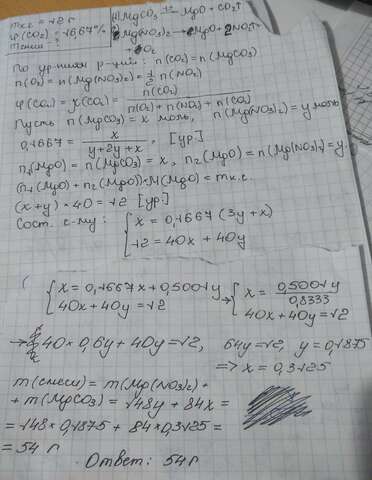 mк.с = 12 г
φ(CO₂) = 16,67%
mсмеси
1) MgCO₃ →ᵗ MgO + CO₂↑
2) Mg(NO₃)₂ → MgO + 2NO₂↑ + ½O₂
По ур-ниям р-ций: n(CO₂) = n(MgCO₃)
n(O₂) = n(Mg(NO₃)₂) = ½ n(NO₂)
φ(CO₂) = χ(CO₂) = n(CO₂) / n(O₂) + n(NO₂) + n(CO₂)
Пусть n(MgCO₃) = x моль, n(Mg(NO₃)₂) = y моль
0,1667 = x / y + 2y + x, [ур.]
n₁(MgO) = n(MgCO₃) = x, n₂(MgO) = n(Mg(NO₃)₂) = y.
(n₁(MgO) + n₂(MgO))·M(MgO) = mк.с.
(x + y) · 40 = 12 [ур.]
Сост. с-му: { x = 0,1667 (3y + x)
12 = 40x + 40y
{ x = 0,1667x + 0,5001y → { x = 0,5001y / 0,8333
40x + 40y = 12 40x + 40y = 12
→ 40 × 0,6y + 40y = 12, 64y = 12, y = 0,1875
=> x = 0,3125
m(смеси) = m(Mg(NO₃)₂) +
+ m(MgCO₃) = 148y + 84x =
= 148 × 0,1875 + 84 × 0,3125 =
= 54 г
Ответ: 54 г